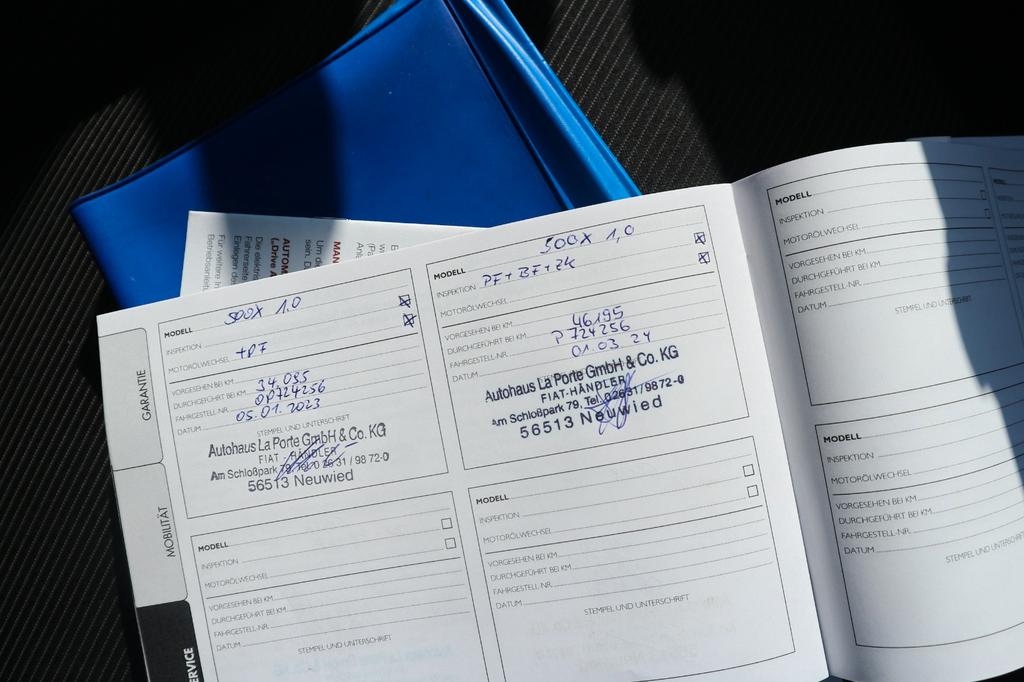 E
(Pa
Anl
MAN
Um de
sein. D
AUTOM
(„Drive A
Die elektris
Fahrerseite
Einlegen der
Für weitere In
Betriebsanleit
GARANTIE
MOBILITÄT
ERVICE
MODELL 500X 1.0
INSPEKTION
MOTORÖLWECHSEL +DF
VORGESEHEN BEI KM
DURCHGEFÜHRT BEI KM 34.095
FAHRGESTELL-NR. 0P724256
DATUM 05.01.2023
STEMPEL UND UNTERSCHRIFT
Autohaus La Porte GmbH & Co. KG
FIAT - HÄNDLER
Am Schloßpark 79, Tel. 0 26 31 / 98 72-0
56513 Neuwied
MODELL 500X 1,0
INSPEKTION PF+BF+ZK
MOTORÖLWECHSEL
VORGESEHEN BEI KM
DURCHGEFÜHRT BEI KM 46195
FAHRGESTELL-NR. P724256
DATUM 01.03.24
Autohaus La Porte GmbH & Co. KG
FIAT-HÄNDLER
Am Schloßpark 79, Tel. 02631/9872-0
56513 Neuwied
MODELL
INSPEKTION
MOTORÖLWECHSEL
VORGESEHEN BEI KM
DURCHGEFÜHRT BEI KM
FAHRGESTELL-NR.
DATUM
STEMPEL UND UNTERSCHRIFT
MODELL
INSPEKTION
MOTORÖLWECHSEL
VORGESEHEN BEI KM
DURCHGEFÜHRT BEI KM
FAHRGESTELL-NR.
DATUM
STEMPEL UND UNTERSCHRIFT
MODELL
INSPEKTION
MOTORÖLWECHSEL
VORGESEHEN BEI KM
DURCHGEFÜHRT BEI KM
FAHRGESTELL-NR.
DATUM
STEMPEL UND UNTERSCHRIFT
MODELL
INSPEKTION
MOTORÖLWECHSEL
VORGESEHEN BEI KM
DURCHGEFÜHRT BEI KM
FAHRGESTELL-NR.
DATUM
STEMPEL UND UNTERSCH